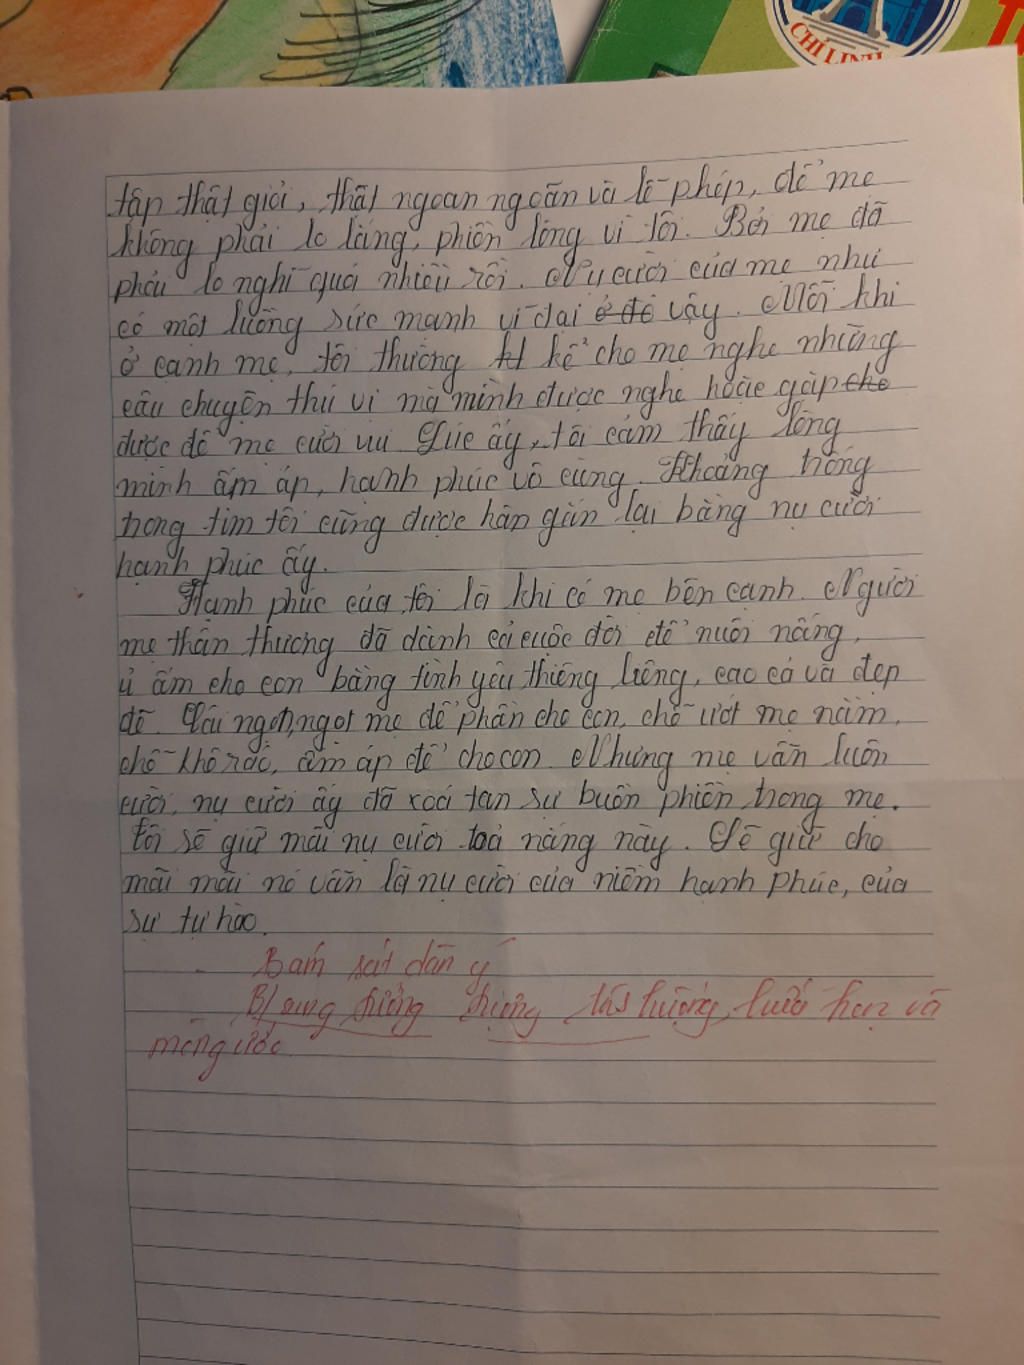 CHÍ LINH
tập thật giỏi, thật ngoan ngoãn và lễ phép, để mẹ
không phải lo lắng, phiền lòng vì tôi. Bởi mẹ đã
phải lo nghĩ quá nhiều rồi. Nụ cười của mẹ như
có một luồng sức mạnh vĩ đại ở đó vậy. Mỗi khi
ở cạnh mẹ, tôi thường kể cho mẹ nghe những
câu chuyện thú vị mà mình được nghe hoặc gặp cho
được để mẹ cười vui. Lúc ấy, tôi cảm thấy lòng
mình ấm áp, hạnh phúc vô cùng. Khoảng trống
trong tim tôi cũng được hàn gắn lại bằng nụ cười
hạnh phúc ấy.
Hạnh phúc của tôi là khi có mẹ bên cạnh. Người
mẹ thân thương đã dành cả cuộc đời để nuôi nấng,
ủ ấm cho con bằng tình yêu thiêng liêng, cao cả và đẹp
đẽ. Cái ngon, ngọt mẹ để phần cho con, chỗ ướt mẹ nằm,
chỗ khô ráo, ấm áp để cho con. Nhưng mẹ vẫn luôn
cười, nụ cười ấy đã xoá tan sự buồn phiền trong mẹ.
Tôi sẽ giữ mãi nụ cười toả nắng này. Sẽ giữ cho
mãi mãi nó vẫn là nụ cười của niềm hạnh phúc, của
sự tự hào.
Bám sát dàn ý
tưởng tượng hứa hẹn và
mong ước.